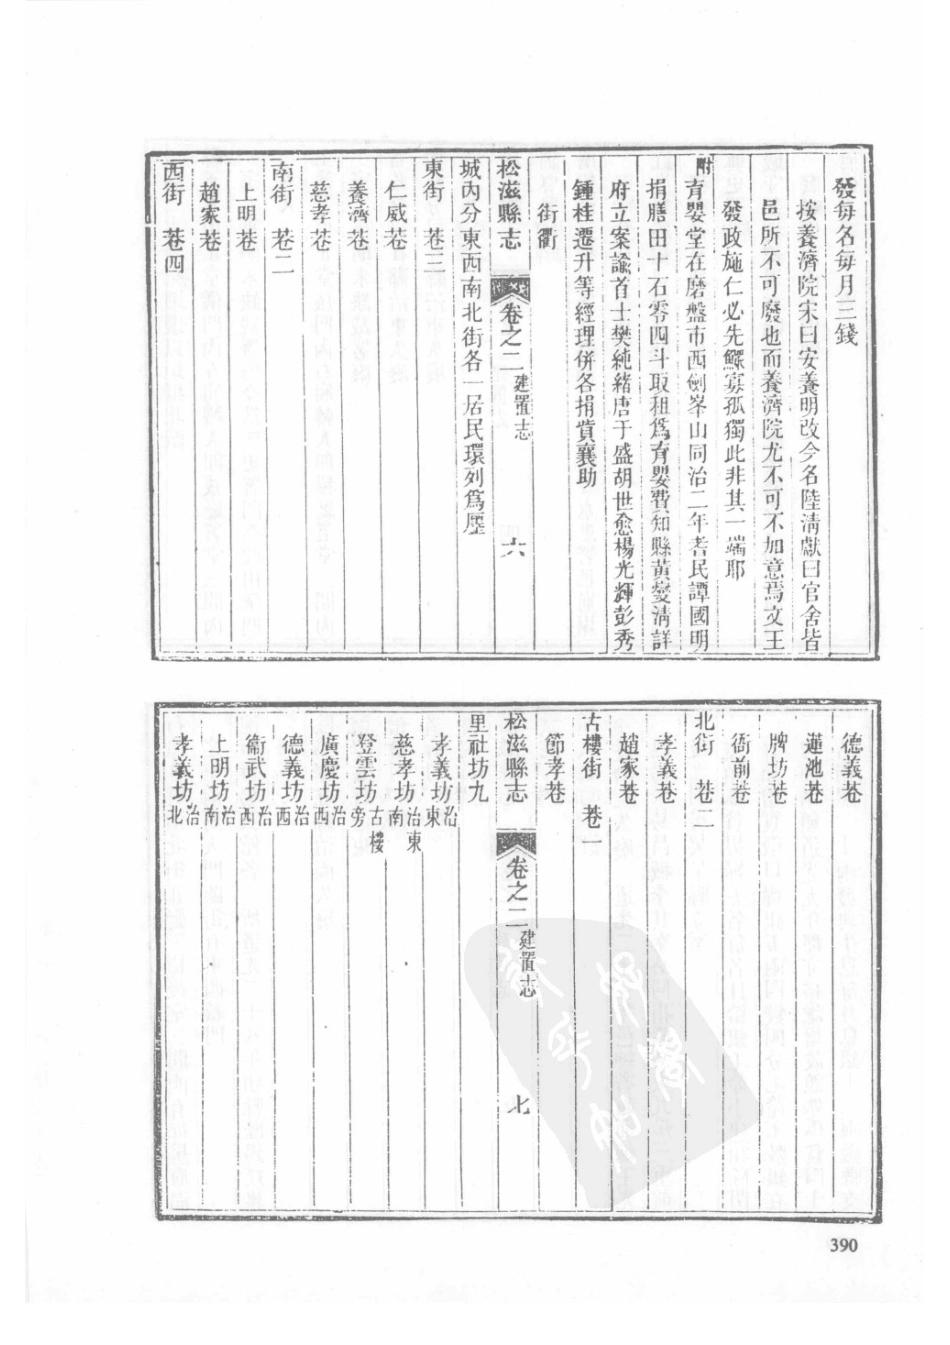 發每名每月三錢
按養濟院宋曰安養明改今名陸清獻曰官舍皆
邑所不可廢也而養濟院尤不可不加意焉文王
發政施仁必先鰥寡孤獨此非其一端耶
附育嬰堂在磨盤市西劍峯山同治二年耆民譚國明
捐膳田十石零四斗取租爲育嬰費知縣黃燮清詳
府立案諭首士樊純緒唐于盛胡世愈楊光輝彭秀
鍾桂遷升等經理併各捐貲襄助
街衢
松滋縣志 卷之二 建置志 六
城內分東西南北街各一居民環列爲廛
東街 巷三
仁威巷
養濟巷
慈孝巷
南街 巷二
上明巷
趙家巷
西街 巷四
德義巷
蓮池巷
牌坊巷
衙前巷
北街 巷二
孝義巷
趙家巷
古樓街 巷一
節孝巷
松滋縣志 卷之二 建置志 七
里社坊九
孝義坊 治東
慈孝坊 治東南
登雲坊 古樓旁
廣慶坊 治西
德義坊 治西
衞武坊 治西
上明坊 治南
孝義坊 治北
390